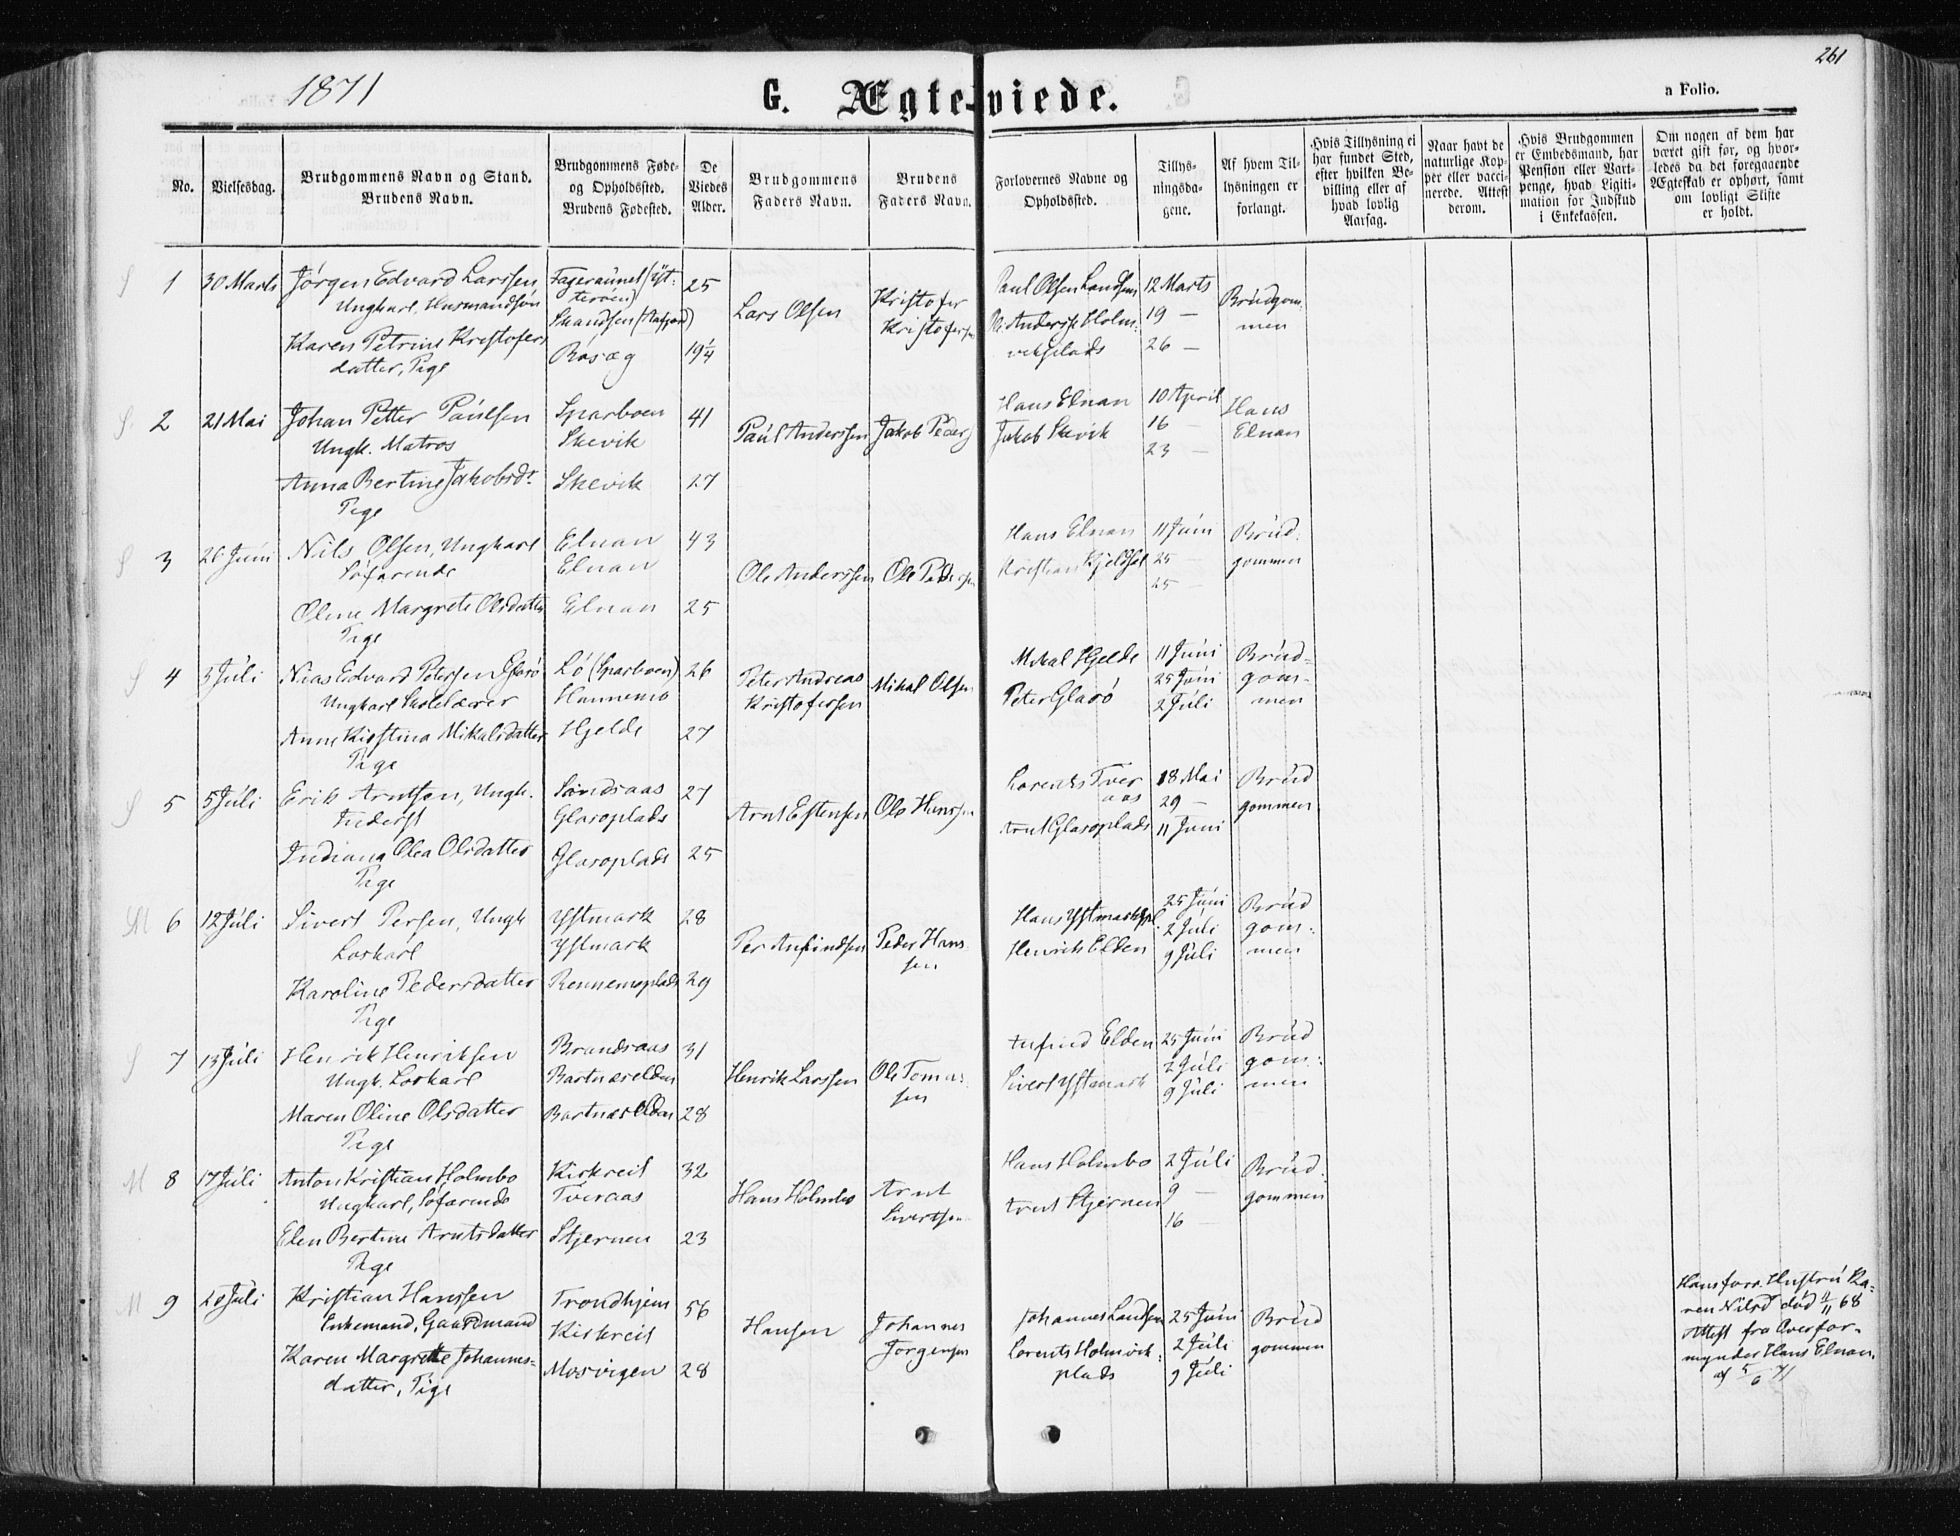 261
1871
G. Ægteviede.
a Folio.
No.
Vielsesdag.
Brudgommens Navn og Stand.
Brudens Navn.
Brudgommens Føde-
og Opholdssted.
Brudens Fødested.
De
Viedes
Alder.
Brudgommens
Faders Navn.
Brudens
Faders Navn.
Forlovernes Navne og
Opholdssted.
Tillys-
ningsda-
gene.
Af hvem Til-
lysningen er
forlangt.
Hvis Tillysning ei
har fundet Sted,
efter hvilken Be-
villing eller af
hvad lovlig
Aarsag.
Naar havt de
naturlige Kop-
per eller vacci-
nerede. Attest
derom.
Hvis Brudgommen
er Embedsmand, har
Pension eller Vart-
penge, hvad Ligiti-
mation for Indskud
i Enkekassen.
Om nogen af dem har
været gift før, og hvor-
ledes da det foregaaende
Ægteskab er ophørt, samt
om lovligt Skifte
er holdt.
S 1 30 Marts
Jörgen Edvard Larssen,
Ungkarl, Husmandssön
Karen Petrine Kristofers
datter, Pige
Fageraunet (Yt-
teröen)
Skandsen
Rösæg
25
19¼
Lars Olsen
Kristofer
Kristofersen
Paul Olsen
Holm-
vikplads
12 Marts
19 —
26 —
Brúdgom-
men
S. 2 21 Mai
Johan Petter Paúlsen
Ungk. Matros
Anna Bertine Jakobsd.
Pige
Sparboen
Skevik
Skevik
41
27
Paúl Anderssen
Jakob Peders
Hans Elnan
Jakob Skevik
10 April
16 —
23 —
Hans
Elnan
S 3 26 Juni
Nils Olsen, Ungkarl
Söfarende
Oline Margrete Olsdatter
Pige
Elnan
Elnan
Elnan
43
25
Ole Anderssen
Ole Pedersen
Hans Elnan
Kristian
11 Júni
25 —
25 —
Brúd-
gommen
S 4 5 Júli
Edvard Petersen Glarö
Ungkarl Skolelærer
Anne Kirstina Mikalsdatter
Pige
Lö (Sparboen)
Hannemo
Hjelde
26
27
Peter Andreas
Kristofersen
Mikal Olsen
Mikal Hjelde
Peter Glarö
11 Júni
25 Júni
2 Júli
Brúd-
gom-
men
S 5 5 Júli
Erik Arntsen, Ungk.
Inderst
Indiana Olea Olsdatter
Pige
Glaroplads
Glaroplads
27
25
Arnt Estensen
Ole Hanssen
Lorents Tver
aas
Arnt Glaroplads
18 Mai
29 —
11 Júni
Brúd
gommen
M 6 12 Júli
Sivert Persen, Ungk
Loskarl
Karoline Pedersdatter
Pige
Ystmark
Ystmark
Rennemsplads
28
29
Per Anfindsen
Peder Hans-
sen
Hans Ystmarkspl.
Henrik Elden
25 Júni
2 Júli
9 Júli
Brúd
gom-
men
S 7 13 Júli
Henrik Henriksen
Ungk. Loskarl
Maren Oline Olsdatter
Pige
Brandsaas
Bartnæselden
Bartnæselden
31
28
Henrik Larssen
Ole Tomas-
sen
Anfind Elden
Sivert Ystmark
25 Júni
2 Júli
9 Júli
Brúd
gom-
men
M 8 17 Júli
Anton Kristian Holmbo
Ungkarl, Söfarende
Elen Bertine Arntsdatter
Pige
Kirkreit
Tveraas
Stjernen
32
23
Hans Holmbo
Arnt
Sivertsen
Hans Holmbo
Arnt Stjernen
2 Júli
9 —
16 —
Brúd-
gommen
M 9 20 Júli
Kristian Hanssen
Enkemand, Gaardmand
Karen Margrethe Johannes-
datter, Pige
Trondhjem
Kirkreit
Mosvigen
56
28
Hansen
Johannes
Jörgensen
Johannes
Lorents Holmvik-
plads
25 Júni
2 Júli
9 Júli
Brúd
gommen
Hans forr. Hustrú Ka-
ren Nilsd död 1/11 68
Attest fra Overfor-
mynder Hans Elnan,
af 5/6 71